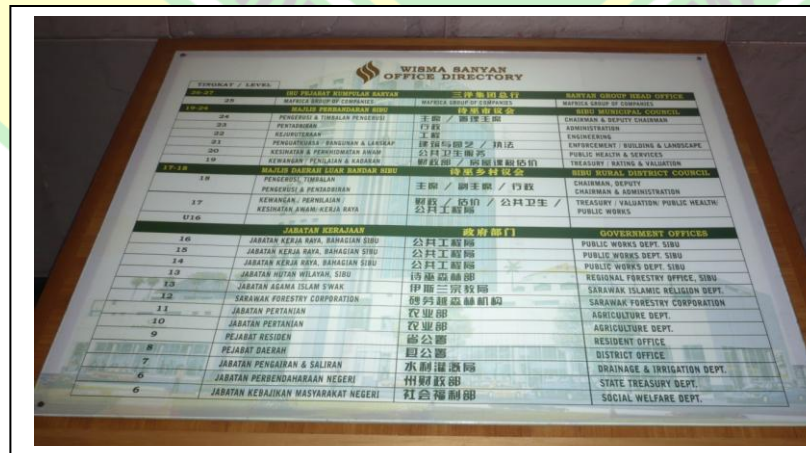 WISMA SANYAN
OFFICE DIRECTORY
TINGKAT / LEVEL
26-27 IBU PEJABAT KUMPULAN SANYAN 三洋集团总行 SANYAN GROUP HEAD OFFICE
25 MAFRICA GROUP OF COMPANIES MAFRICA GROUP OF COMPANIES MAFRICA GROUP OF COMPANIES
19-24 MAJLIS PERBANDARAN SIBU 诗巫市议会 SIBU MUNICIPAL COUNCIL
24 PENGERUSI & TIMBALAN PENGERUSI 主席 / 主席 CHAIRMAN & DEPUTY CHAIRMAN
23 PENTADBIRAN 行政 ADMINISTRATION
22 KEJURUTERAAN 工程 ENGINEERING
21 PENGUATKUASA / BANGUNAN & LANSKAP 建筑与园艺 / 执法 ENFORCEMENT / BUILDING & LANDSCAPE
20 KESIHATAN & PERKHIDMATAN AWAM 公共卫生服务 PUBLIC HEALTH & SERVICES
19 KEWANGAN / PENILAIAN & KADARAN 财政部 / 房屋课税估价 TREASURY / RATING & VALUATION
17-18 MAJLIS DAERAH LUAR BANDAR SIBU 诗巫乡村议会 SIBU RURAL DISTRICT COUNCIL
18 PENGERUSI, TIMBALAN
PENGERUSI & PENTADBIRAN 主席 / 副主席 / 行政 CHAIRMAN, DEPUTY
CHAIRMAN & ADMINISTRATION
17 KEWANGAN / PERNILAIAN /
KESIHATAN AWAM/ KERJA RAYA 财政 / 估价 / 公共卫生 /
公共工程局 TREASURY / VALUATION/ PUBLIC HEALTH/
PUBLIC WORKS
U16
JABATAN KERAJAAN 政府部门 GOVERNMENT OFFICES
16 JABATAN KERJA RAYA, BAHAGIAN SIBU 公共工程局 PUBLIC WORKS DEPT. SIBU
15 JABATAN KERJA RAYA, BAHAGIAN SIBU 公共工程局 PUBLIC WORKS DEPT. SIBU
14 JABATAN KERJA RAYA, BAHAGIAN SIBU 公共工程局 PUBLIC WORKS DEPT. SIBU
13 JABATAN HUTAN WILAYAH, SIBU 诗巫森林部 REGIONAL FORESTRY OFFICE, SIBU
13 JABATAN AGAMA ISLAM S'WAK 伊斯兰宗教局 SARAWAK ISLAMIC RELIGION DEPT.
12 SARAWAK FORESTRY CORPORATION 砂劳越森林机构 SARAWAK FORESTRY CORPORATION
11 JABATAN PERTANIAN 农业部 AGRICULTURE DEPT.
10 JABATAN PERTANIAN 农业部 AGRICULTURE DEPT.
9 PEJABAT RESIDEN 省公署 RESIDENT OFFICE
8 PEJABAT DAERAH 县公署 DISTRICT OFFICE
7 JABATAN PENGAIRAN & SALIRAN 水利灌溉局 DRAINAGE & IRRIGATION DEPT.
6 JABATAN PERBENDAHARAAN NEGERI 州财政部 STATE TREASURY DEPT.
6 JABATAN KEBAJIKAN MASYARAKAT NEGERI 社会福利部 SOCIAL WELFARE DEPT.